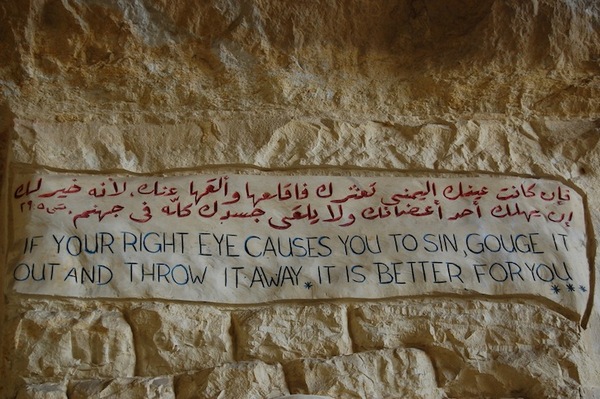 فإن كانت عينك اليمنى تعثرك فاقلعها وألقها عنك، لأنه خير لك
إن يهلك أحد أعضائك ولا يلقى جسدك كله في جهنم. متى ٢٩:٥
IF YOUR RIGHT EYE CAUSES YOU TO SIN, GOUGE IT
OUT AND THROW IT AWAY. IT IS BETTER FOR YOU ***